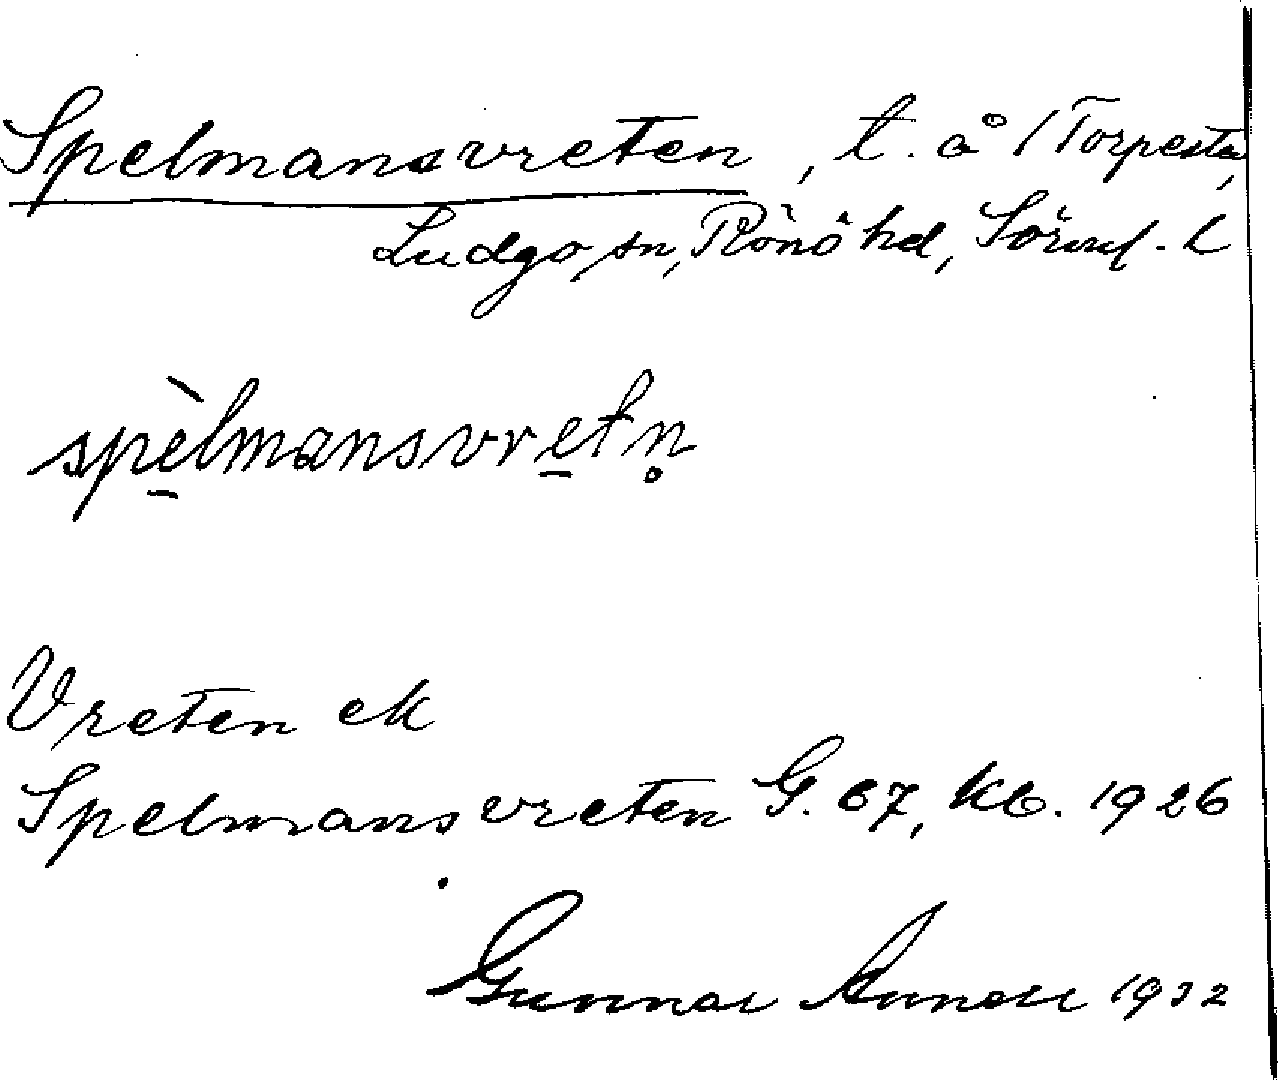 Spelmansvreten, t. å /Torpesta,
Ludgo sn, Rönö hd, Sörml. l
spèlmansvretn̥
Vreten ek
Spelmansvreten G. 67, Kb. 1926
Gunnar Annell 1932